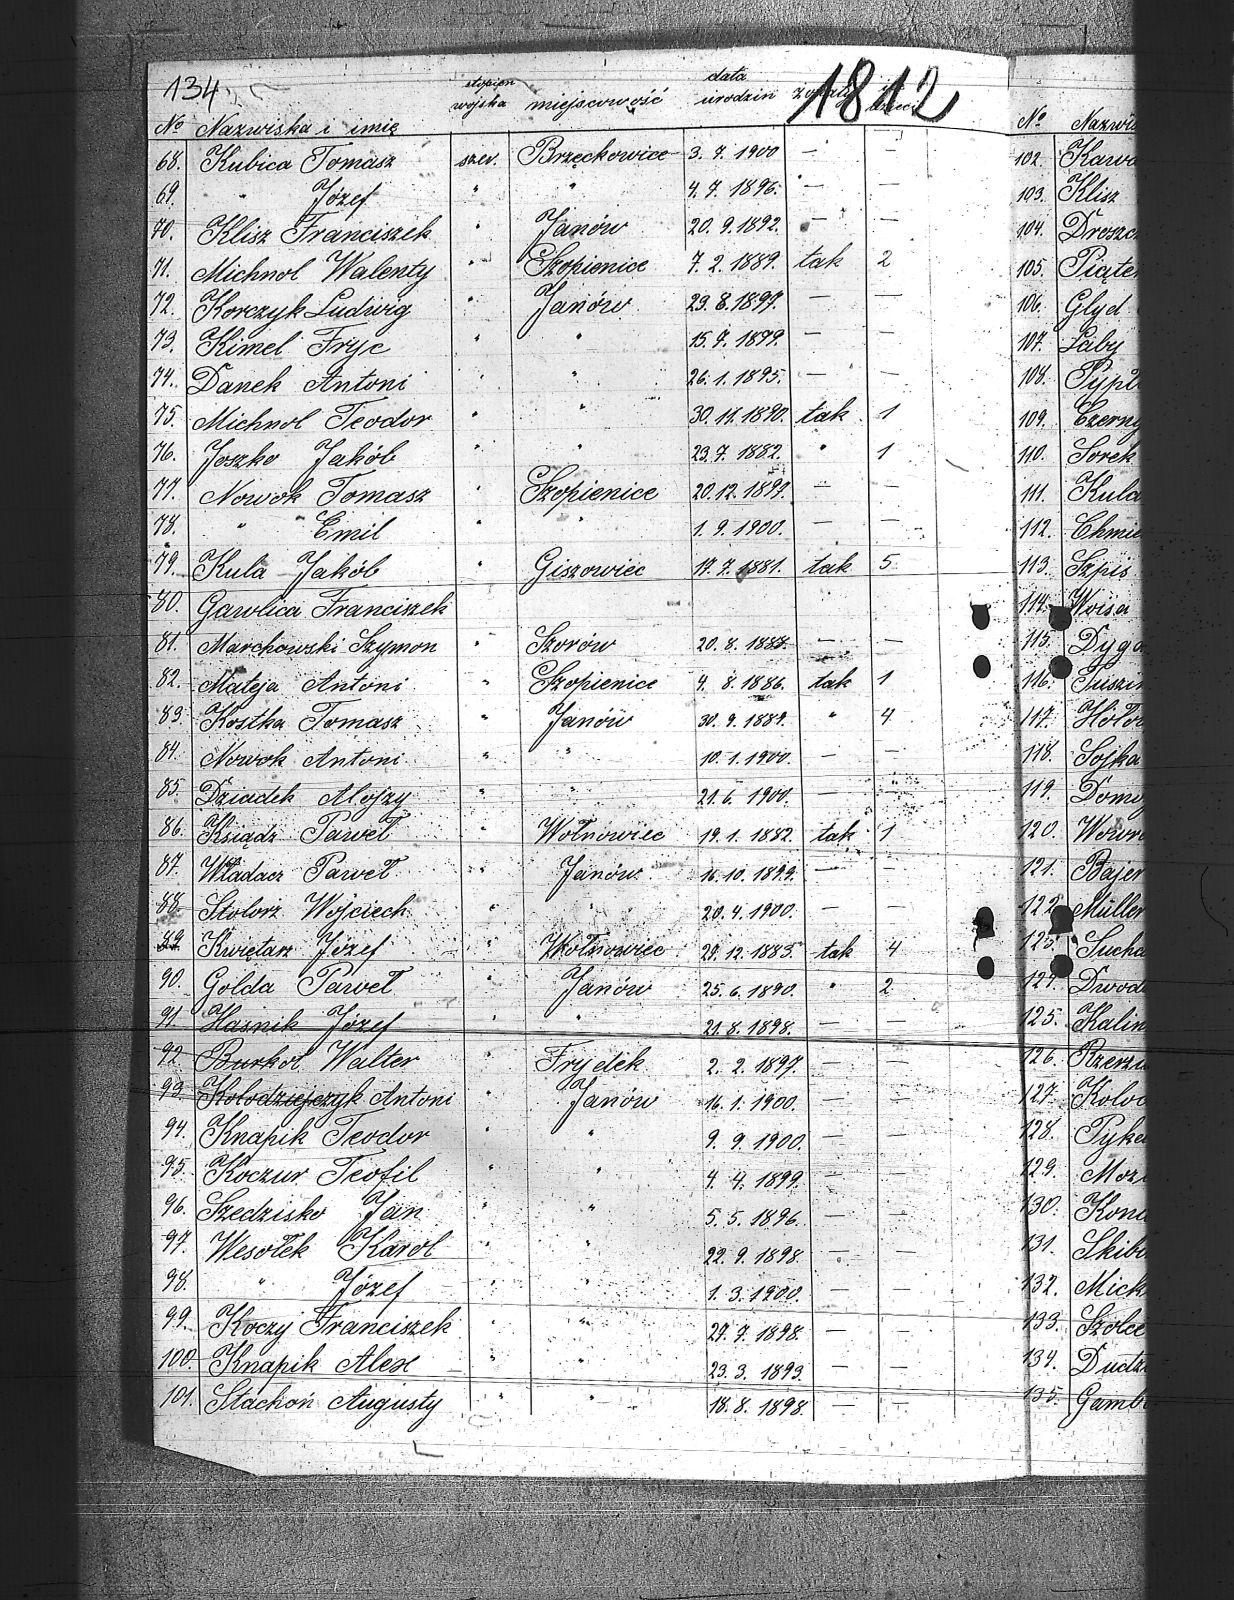 134 1812
№ Nazwiska i imię stopień wojska miejscowość data urodzin
68. Kubica Tomasz szer. Brzęckowice 3. 7. 1900 — —
69. " Józef " " 4. 7. 1896. — —
70. Klisz Franciszek " Janów 20. 9. 1892. — —
71. Michnol Walenty " Szopienice 7. 2. 1889. tak 2
72. Korczyk Ludwig " Janów 29. 8. 1897. — —
73. Kimel Fryc " " 15. 7. 1899. — —
74. Danek Antoni " " 26. 1. 1895. — —
75. Michnol Teodor " " 30. 11. 1890. tak 1
76. Joszko Jakób " " 23. 7. 1882. " 1
77. Nowok Tomasz " Szopienice 20. 12. 1899. — —
78. " Emil " " 1. 9. 1900. — —
79. Kula Jakób " Giszowiec 17. 7. 1881. tak 5
80. Gawlica Franciszek
81. Marchowski Szymon " Szorów 20. 8. 1887. — —
82. Mateja Antoni " Szopienice 4. 8. 1886. tak 1
83. Kostka Tomasz " Janów 30. 9. 1889. " 4
84. Nowok Antoni " " 10. 1. 1900. — —
85. Dziadek Alojzy " " 21. 6. 1900. — —
86. Ksiądz Paweł " Wołnowiec 19. 1. 1882. tak 1
87. Władacz Paweł " Janów 16. 10. 1899. — —
88. Stolorz Wojciech " " 20. 4. 1900. — —
89. Kwiętarz Józef " Wołnowiec 29. 12. 1883. tak 4
90. Golda Paweł " Janów 25. 6. 1890. " 2
91. Hasnik Józef " " 21. 8. 1898. — —
92. Burkot Walter " Frydek 2. 2. 1897. — —
93. Kolodziejczyk Antoni " Janów 16. 1. 1900. — —
94. Knapik Teodor " " 9. 9. 1900. — —
95. Koczur Teofil " " 4. 4. 1899. — —
96. Szedzisko Jan " " 5. 5. 1896. — —
97. Wesołek Karol " " 22. 9. 1898. — —
98. " Józef " " 1. 3. 1900. — —
99. Koczy Franciszek " " 29. 7. 1898. — —
100. Knapik Alex " " 23. 3. 1893. — —
101. Stachoń Augusty " " 18. 8. 1898. — —
№ Nazwis
102. Kawa
103. Klisz
104. Droszc
105. Piąte
106. Glyd
107. Laby
108. Pypł
109. Czerny
110. Sorek
111. Kula
112. Chmie
113. Szpis
114. Woisa
115. Dyga
116. Tuszin
117. Hołow
118. Sojka
119. Domo
120. Wowro
121. Bajer
122. Müller
123. Sucha
124. Dwod
125. Kalin
126. Rzerz
127. Koloc
128. Pyka
129. Moz
130. Kon
131. Skib
132. Mick
133. Szolce
134. Dudz
135. Gamb